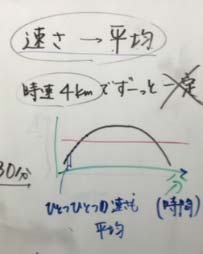 速さ → 平均
時速4kmでずーっと 一定
30分
分
(時間)
ひとつひとつの速さも
平均